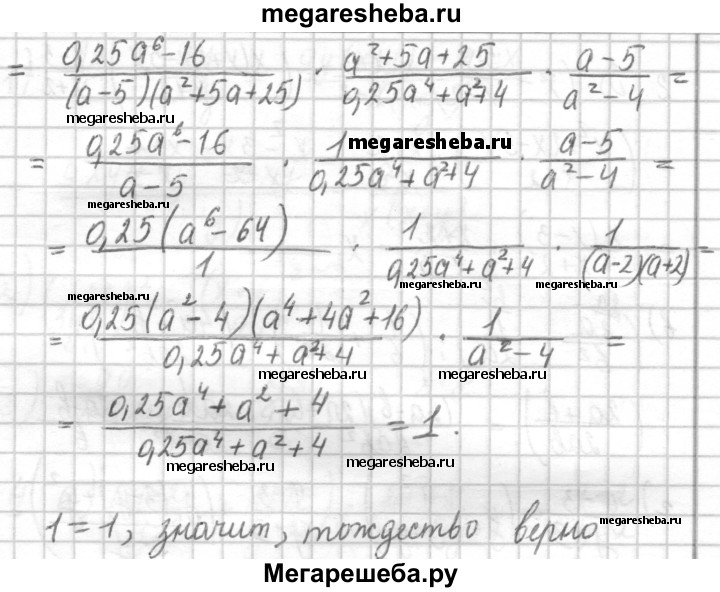 megaresheba.ru
= (0,25a⁶-16)/((a-5)(a²+5a+25)) · (a²+5a+25)/(0,25a⁴+a²+4) · (a-5)/(a²-4) =
megaresheba.ru megaresheba.ru megaresheba.ru
= (0,25a⁶-16)/(a-5) · 1/(0,25a⁴+a²+4) · (a-5)/(a²-4) =
megaresheba.ru megaresheba.ru
= 0,25(a⁶-64)/1 · 1/(0,25a⁴+a²+4) · 1/((a-2)(a+2)) =
megaresheba.ru megaresheba.ru megaresheba.ru
= 0,25(a²-4)(a⁴+4a²+16)/(0,25a⁴+a²+4) · 1/(a²-4) =
megaresheba.ru megaresheba.ru
= (0,25a⁴+a²+4)/(0,25a⁴+a²+4) = 1.
megaresheba.ru megaresheba.ru
1=1, значит, тождество верно
megaresheba.ru
Мегарешеба.ру